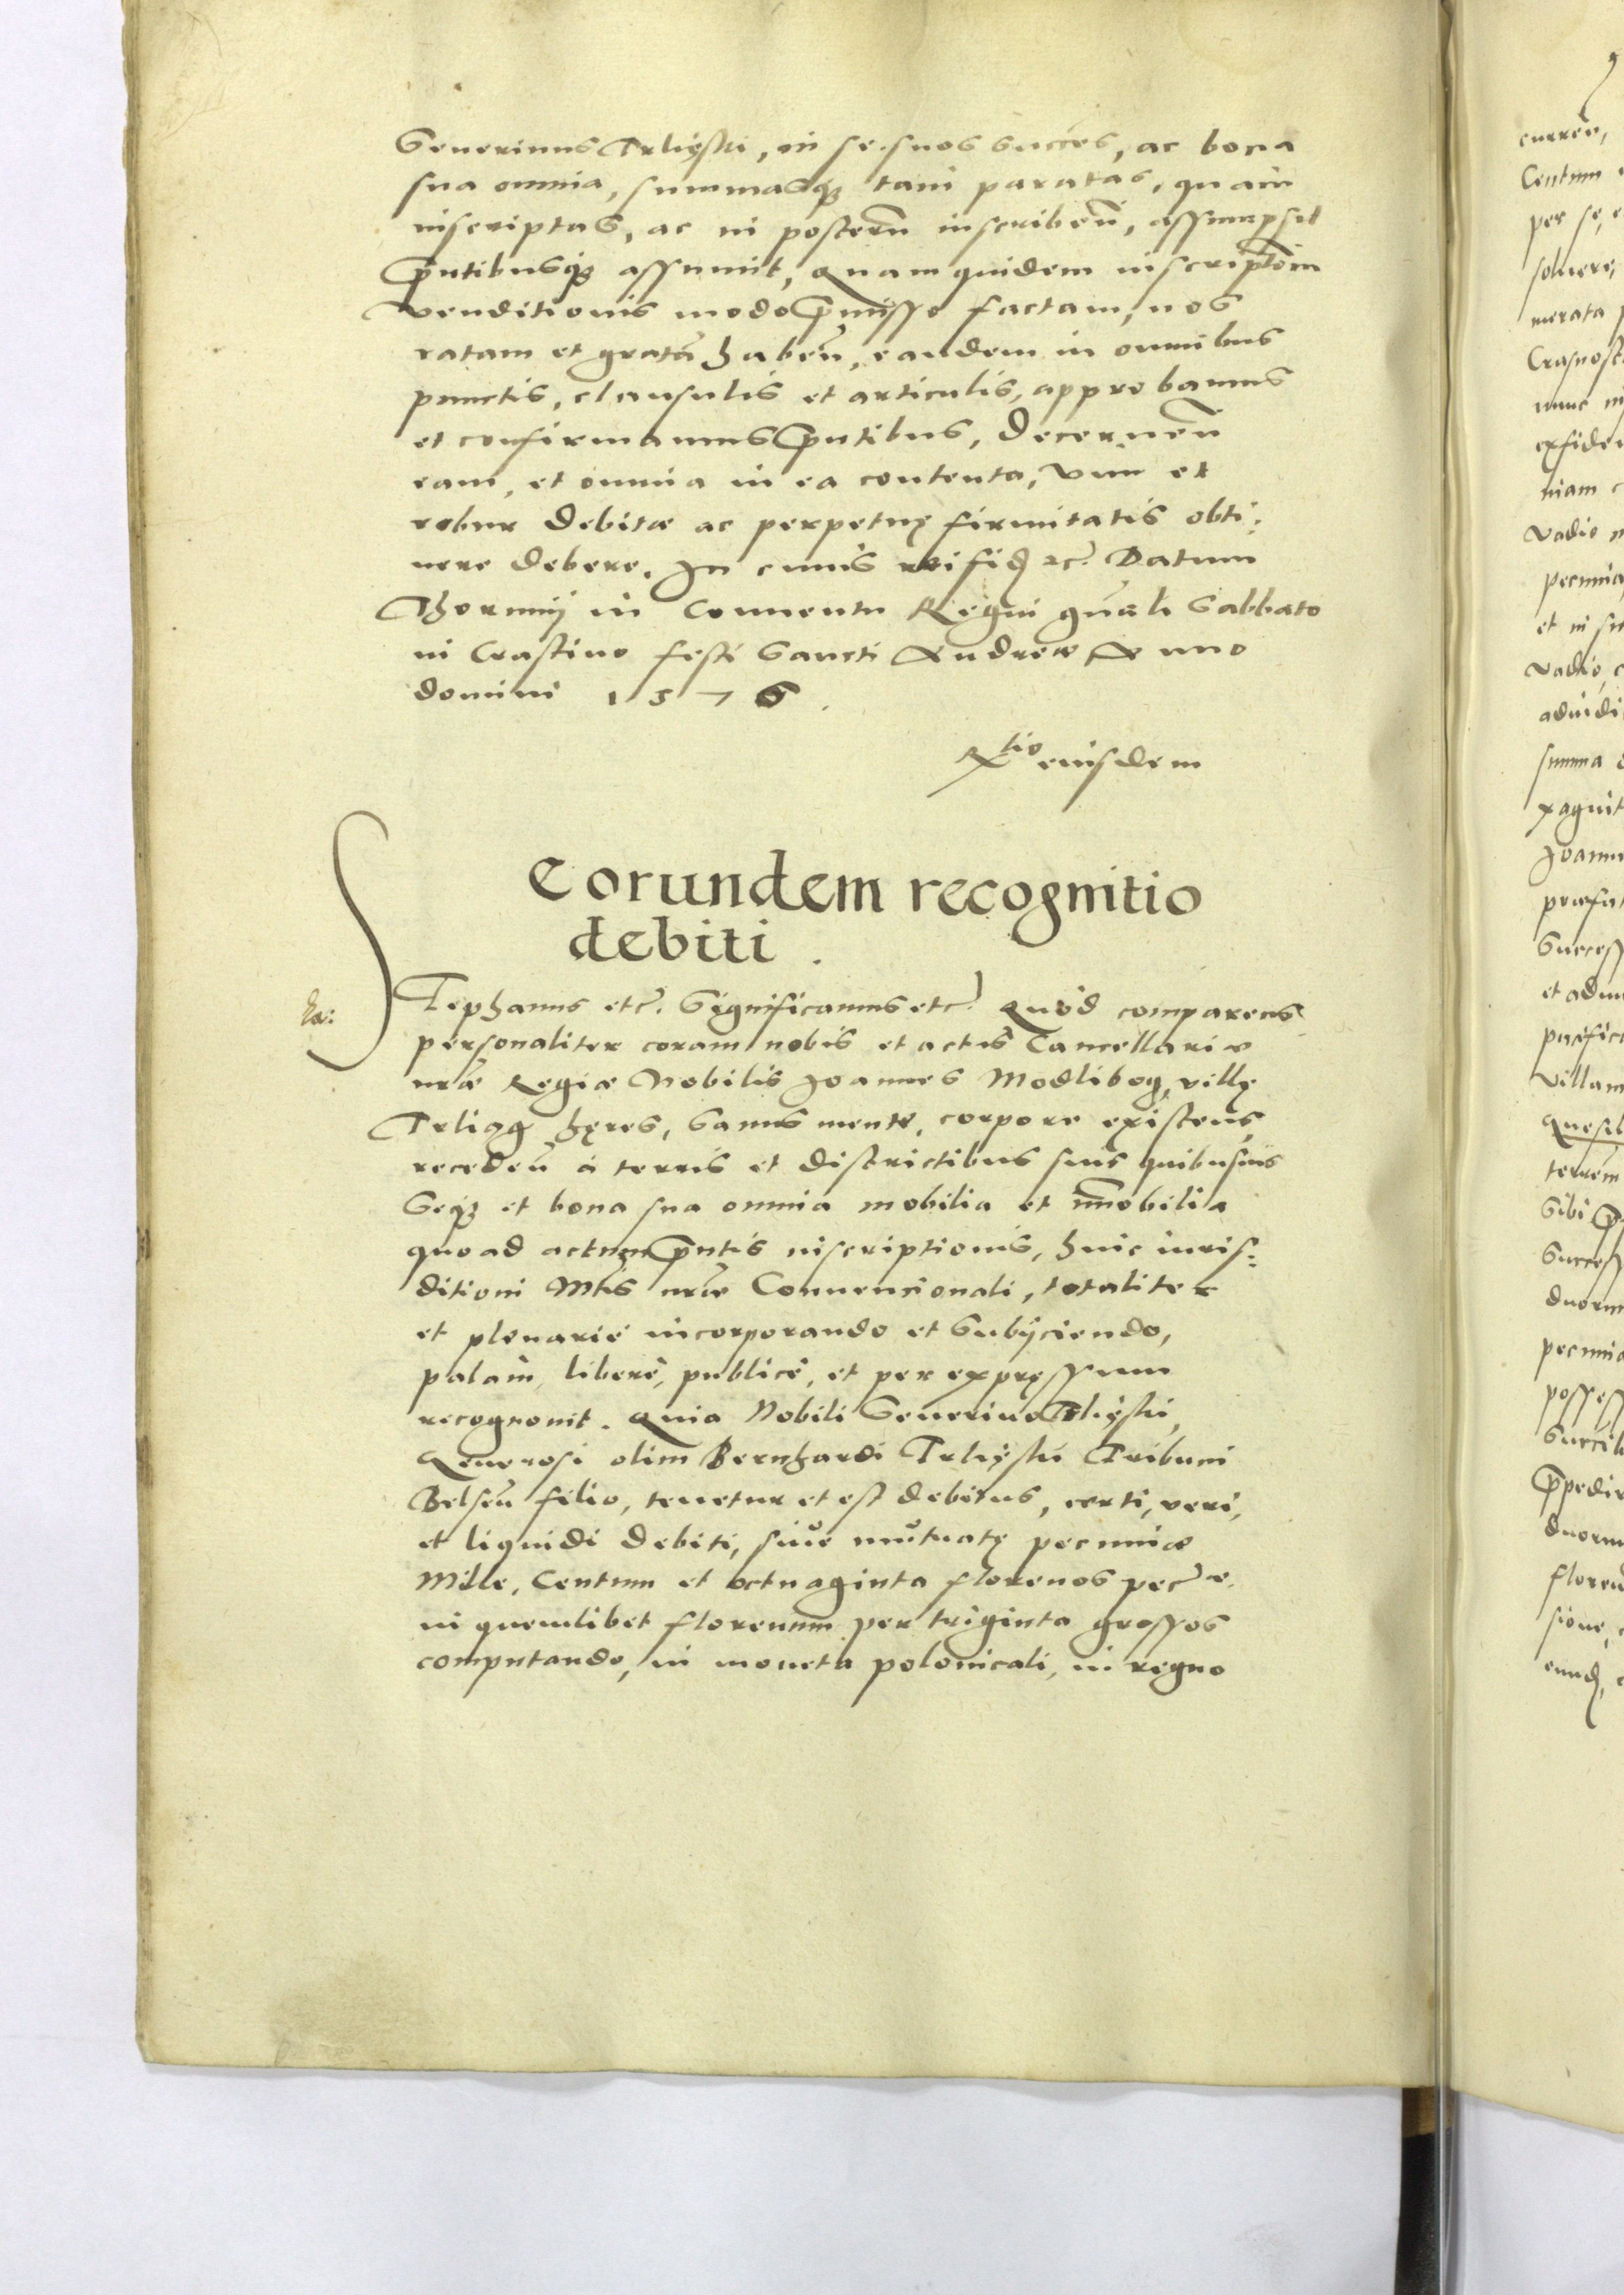 Seuerinus Trlięski, in se. suos succes, ac bona
sua omnia, summasq3 tam paratas, quam
inscriptas, ac in posterū inscribeñ, assumpsit
p̄ntibusq3 assumit, Quam quidem inscriptōm
venditionis modo p̄misso factam, nos
ratam et gratā habeñ, eandem in omnibus
punctis, clausulis et articulis, approbamus
et confirmamus p̄ntibus, Decerneñ
eam, et omnia in ea contenta, vim et
robur debitæ ac perpetuę firmitatis obti:
nere debere. In cuius rei fid̄ etc̄. Datum
Thorunij in Conuentu Regni gñali Sabbato
in Crastino festi Sancti Andreæ Anno
domini 1576.
Rtio eiusdem
Eorundem recognitio
debiti.
STephanus etc̄. Significamus etc̄. Quod comparens
personaliter coram nobis et actis Cancellariæ
nrāe Regiæ Nobilis Joannes Modlibog, villę
Trliąg hęres, sanus mente, corpore existens,
recedeñ à terris et districtibus suis quibusuis
Seq3 et bona sua omnia mobilia et īmobilia
quo ad actum p̄ntis inscriptionis, huic iuris:
ditioni Mtis nrāe Conuencionali, totaliter
et plenarie incorporando et subijciendo,
palam, libere, publice, et per expressum
recognouit. Quia Nobili Seuerino Trlięski,
Generosi olim Bernhardi Trlięski Tribuni
Belseñ filio, tenetur et est debitus, certi, veri,
et liquidi debiti, siue mutuatę pecuniæ
Mille, Centum et octuaginta florenos pec̄e.
in quemlibet florenum per triginta grossos
computando, in moneta polonicali, in regno